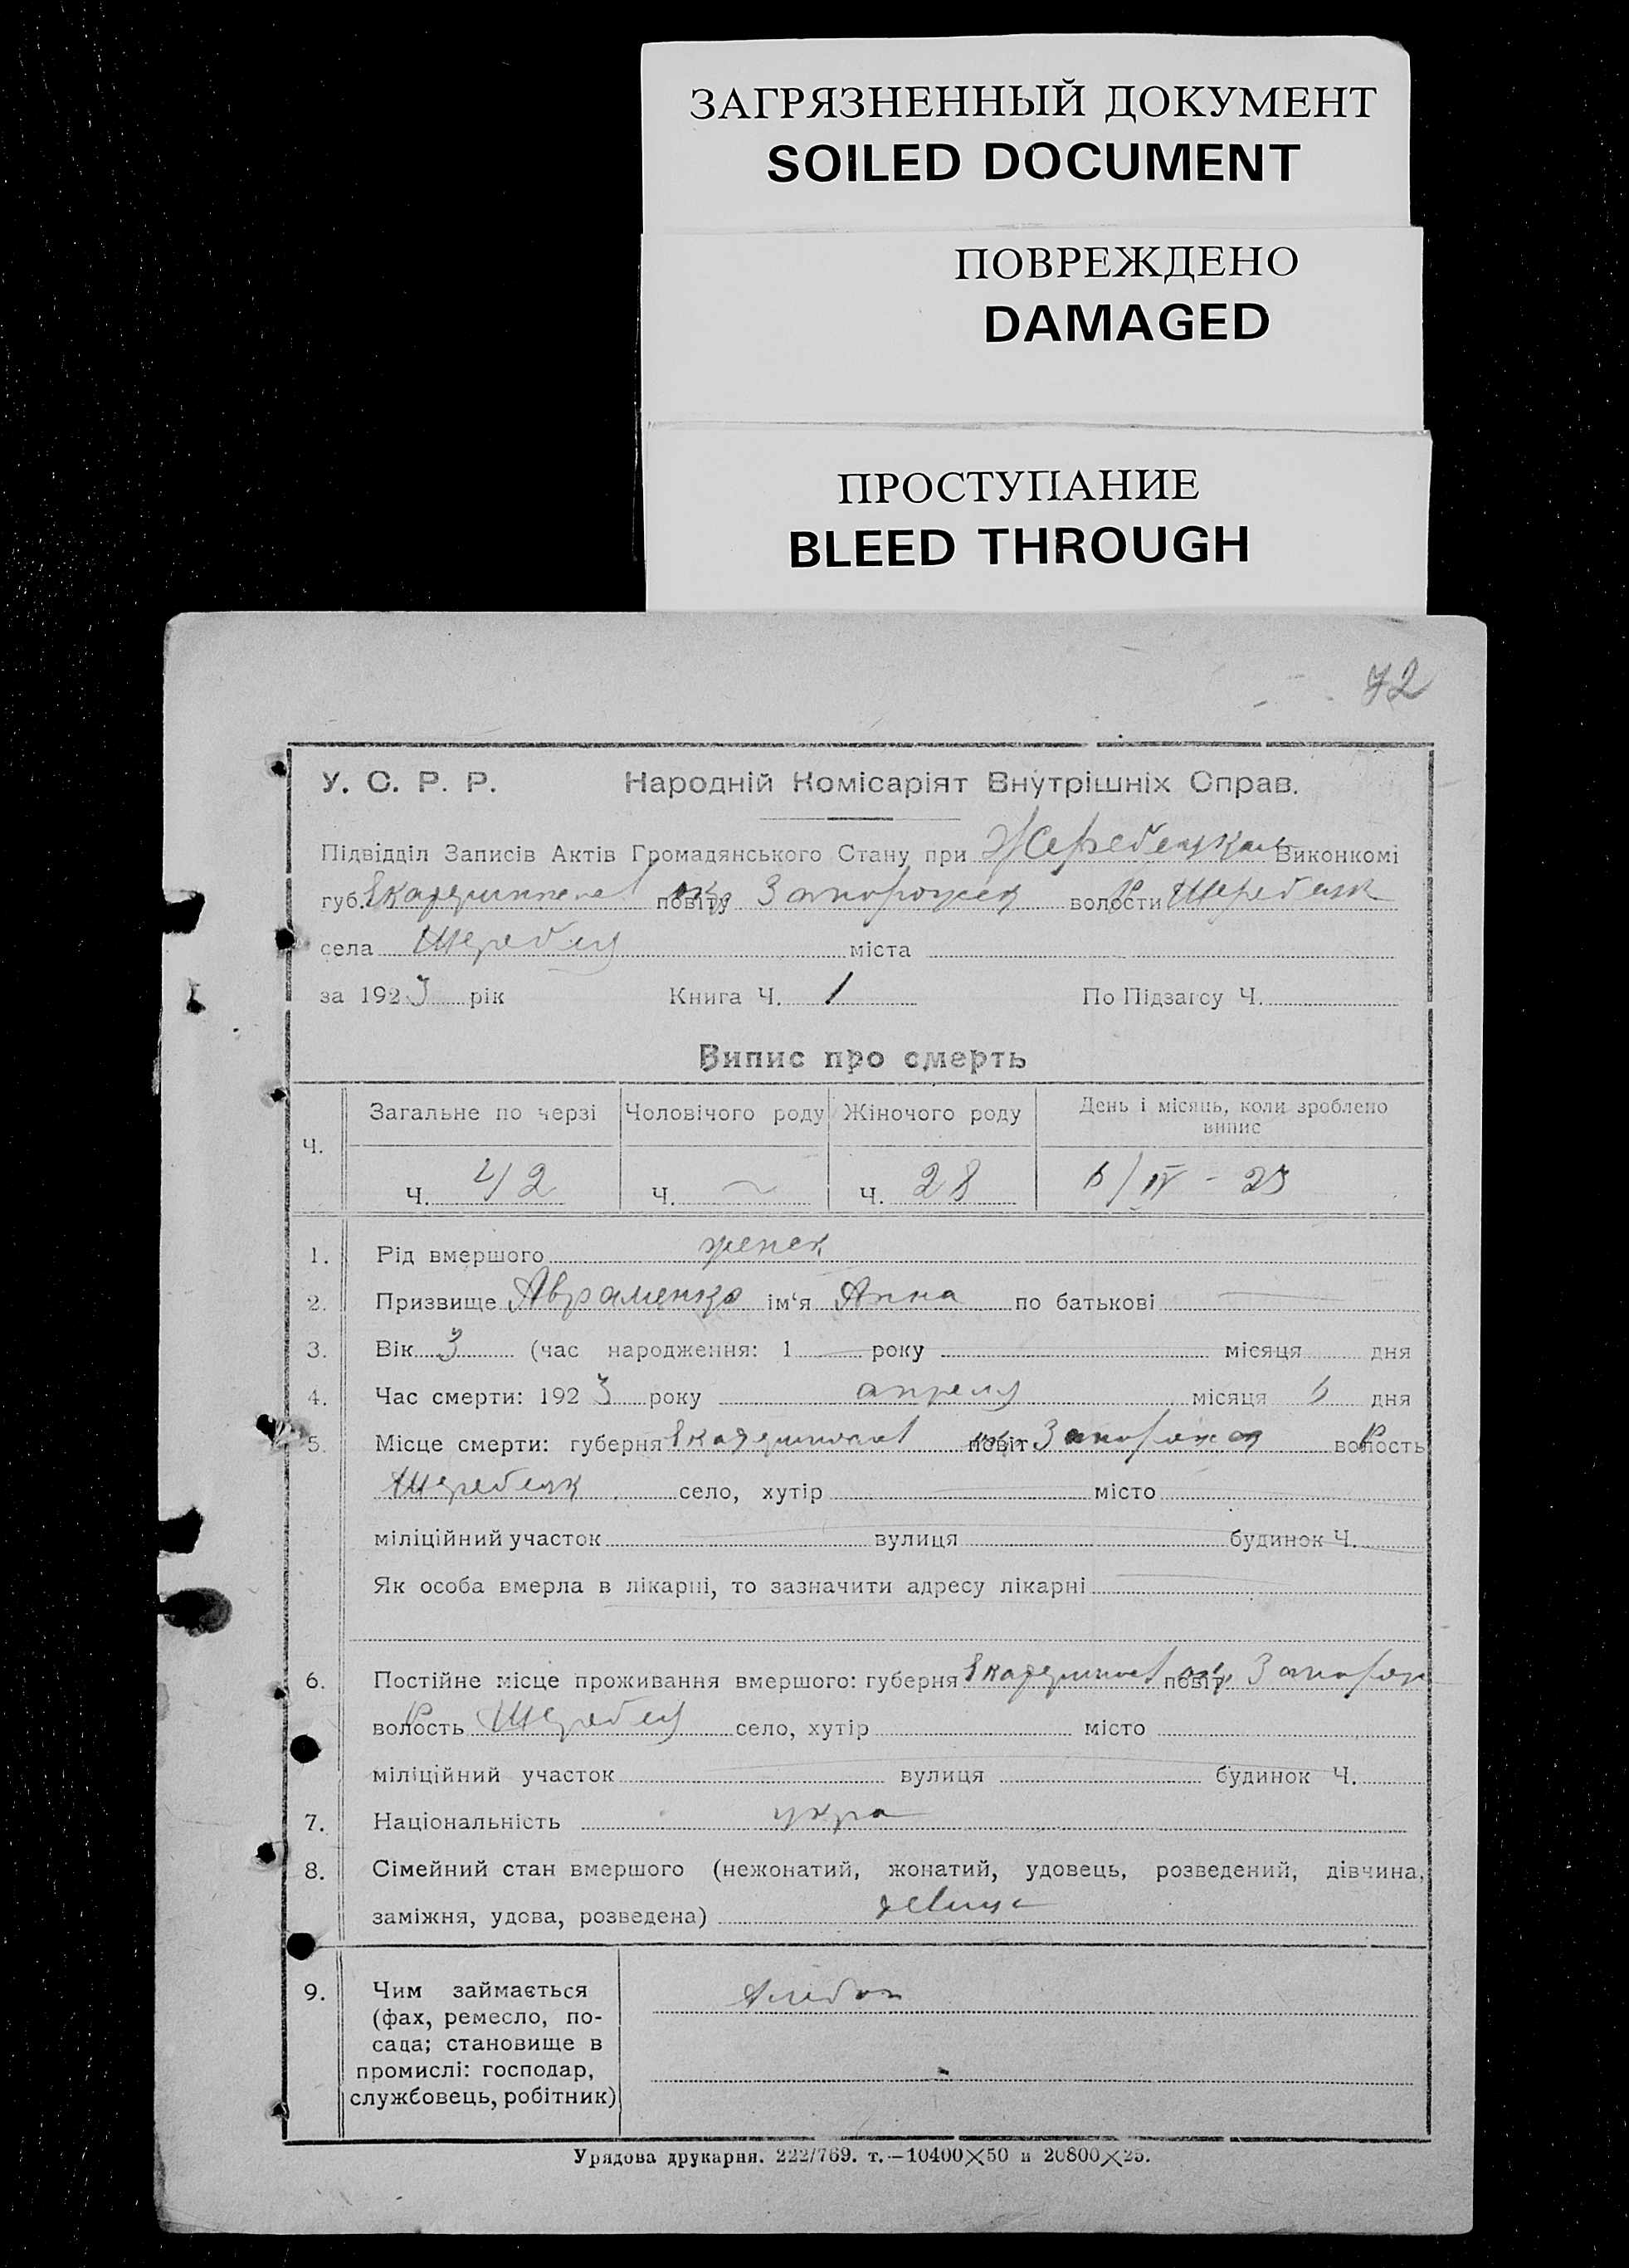 ЗАГРЯЗНЕННЫЙ ДОКУМЕНТ
SOILED DOCUMENT
ПОВРЕЖДЕНО
DAMAGED
ПРОСТУПАНИЕ
BLEED THROUGH
72
У. С. Р. Р. Народній Комісаріят Внутрішніх Справ.
Підвідділ Записів Актів Громадянського Стану при Виконкомі
губ. повіту волости Жеребецк
села Жеребец міста
за 1923 рік Книга Ч. 1 По Підзагсу Ч.
Випис про смерть
Ч. Загальне по черзі Чоловічого роду Жіночого роду День і місяць, коли зроблено
випис
Ч. 42 Ч. ~ Ч. 28 6/IV - 23
1. Рід вмершого женск
2. Призвище Авраменко ім‘я Анна по батькові
3. Вік 3 (час народження: 1 року місяця дня
4. Час смерти: 1923 року апреля місяця 6 дня
5. Місце смерти: губерня повіт волость
Жеребецк село, хутір місто
міліційний участок вулиця будинок Ч.
Як особа вмерла в лікарні, то зазначити адресу лікарні
6. Постійне місце проживання вмершого: губерня повіт
волость Жеребец село, хутір місто
міліційний участок вулиця будинок Ч.
7. Національність укра
8. Сімейний стан вмершого (нежонатий, жонатий, удовець, розведений, дівчина,
заміжня, удова, розведена) девица
9. Чим займається
(фах, ремесло, по-
сада; становище в
промислі: господар,
службовець, робітник)
Урядова друкарня. 222/769. т.—10400×50 и 20800×25.